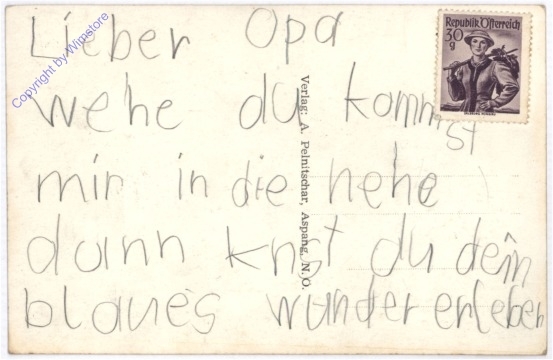 Lieber Opa
wehe du kommst
mir in die hehe
dann knst du dein
blaues wunder erleben
Verlag: A. Pelnitschar, Aspang, N. Ö.
Republik Österreich
30
g
Copyright by Wimstore